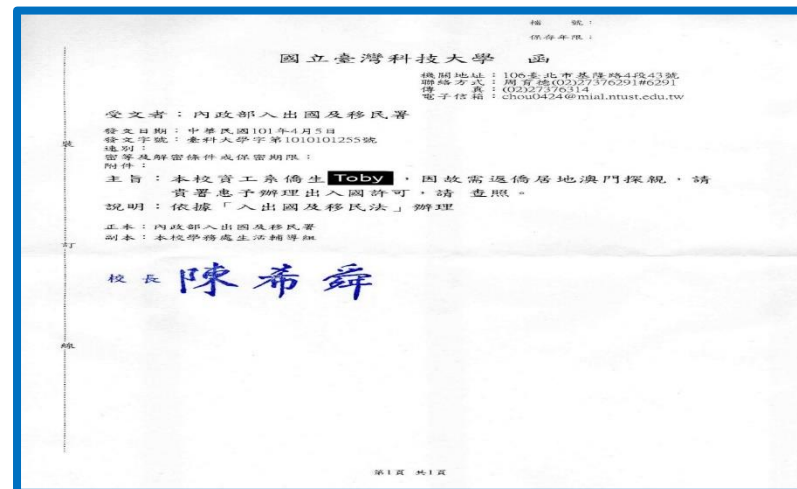 檔　　號：
保存年限：
國立臺灣科技大學　函
機關地址：106臺北市基隆路4段43號
聯絡方式：周育德(02)27376291#6291
傳　　真：(02)27376314
電子信箱：chou0424@mial.ntust.edu.tw
受文者：內政部入出國及移民署
發文日期：中華民國101年4月5日
發文字號：臺科大學字第1010101255號
速別：
密等及解密條件或保密期限：
附件：
主旨：本校資工系僑生 Toby ，因故需返僑居地澳門探親，請
貴署惠予辦理出入國許可，請　查照。
說明：依據「入出國及移民法」辦理
正本：內政部入出國及移民署
副本：本校學務處生活輔導組
校長 陳希舜
裝
訂
線
第1頁 共1頁